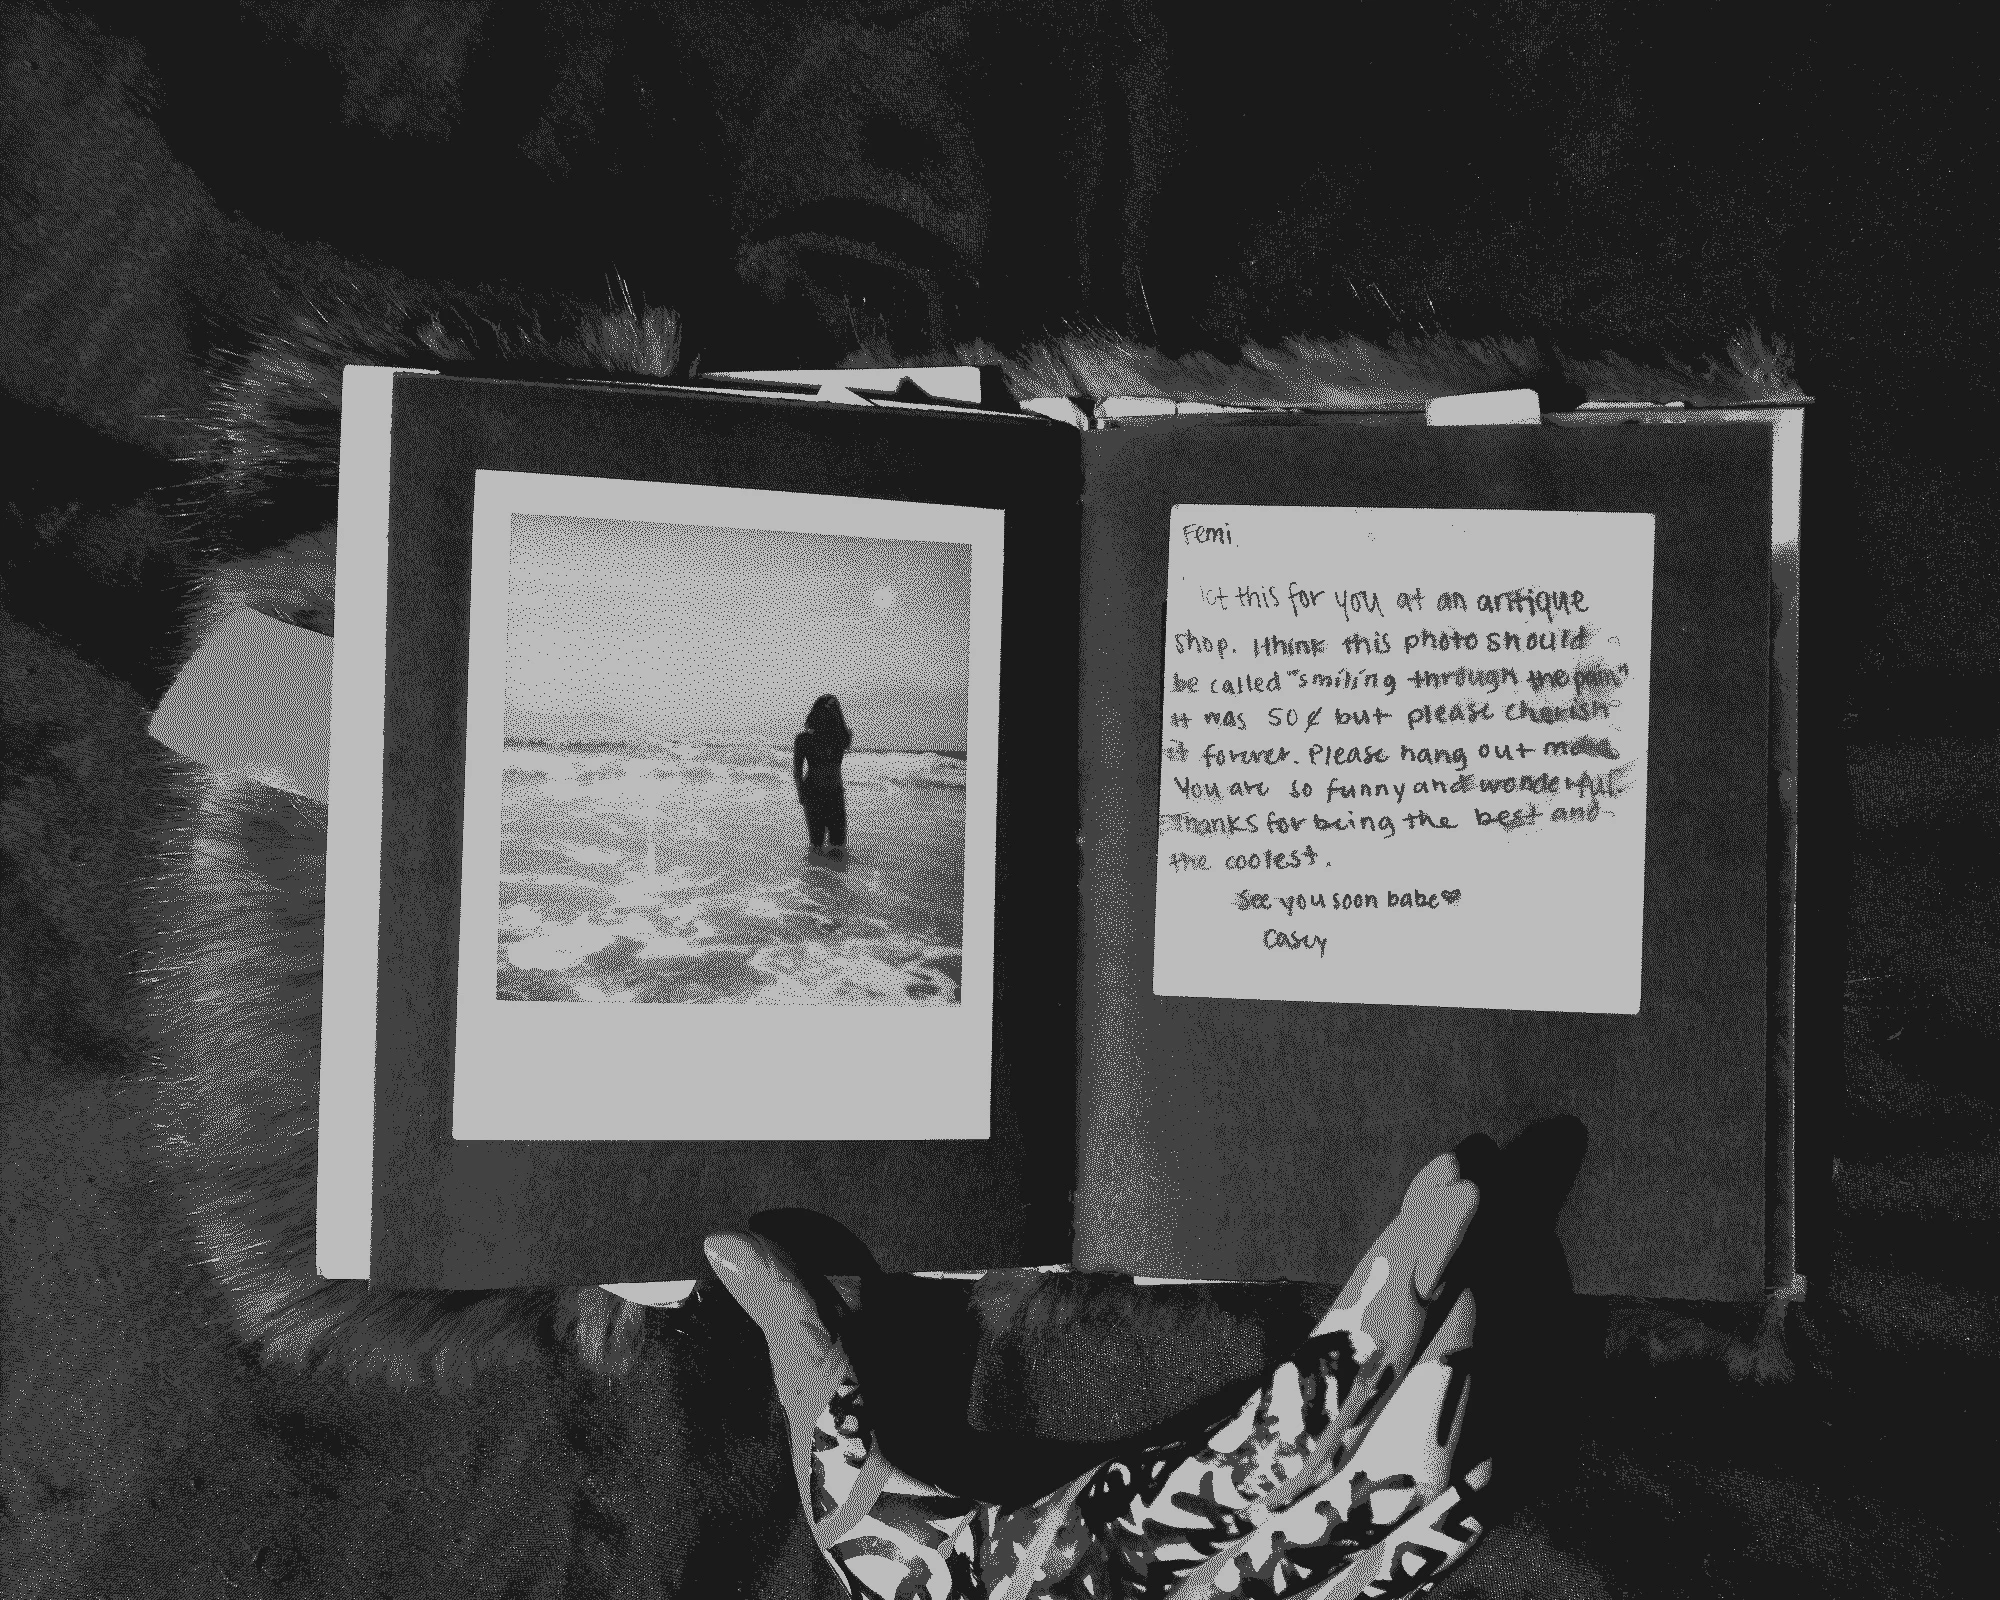 Femi
this for you at an antique
shop. I think this photo should
be called "smiling through the pain"
It was 50¢ but please cherish
it forever. Please hang out more
You are so funny and wonderful.
Thanks for being the best and
the coolest.
See you soon babe♥
Casey